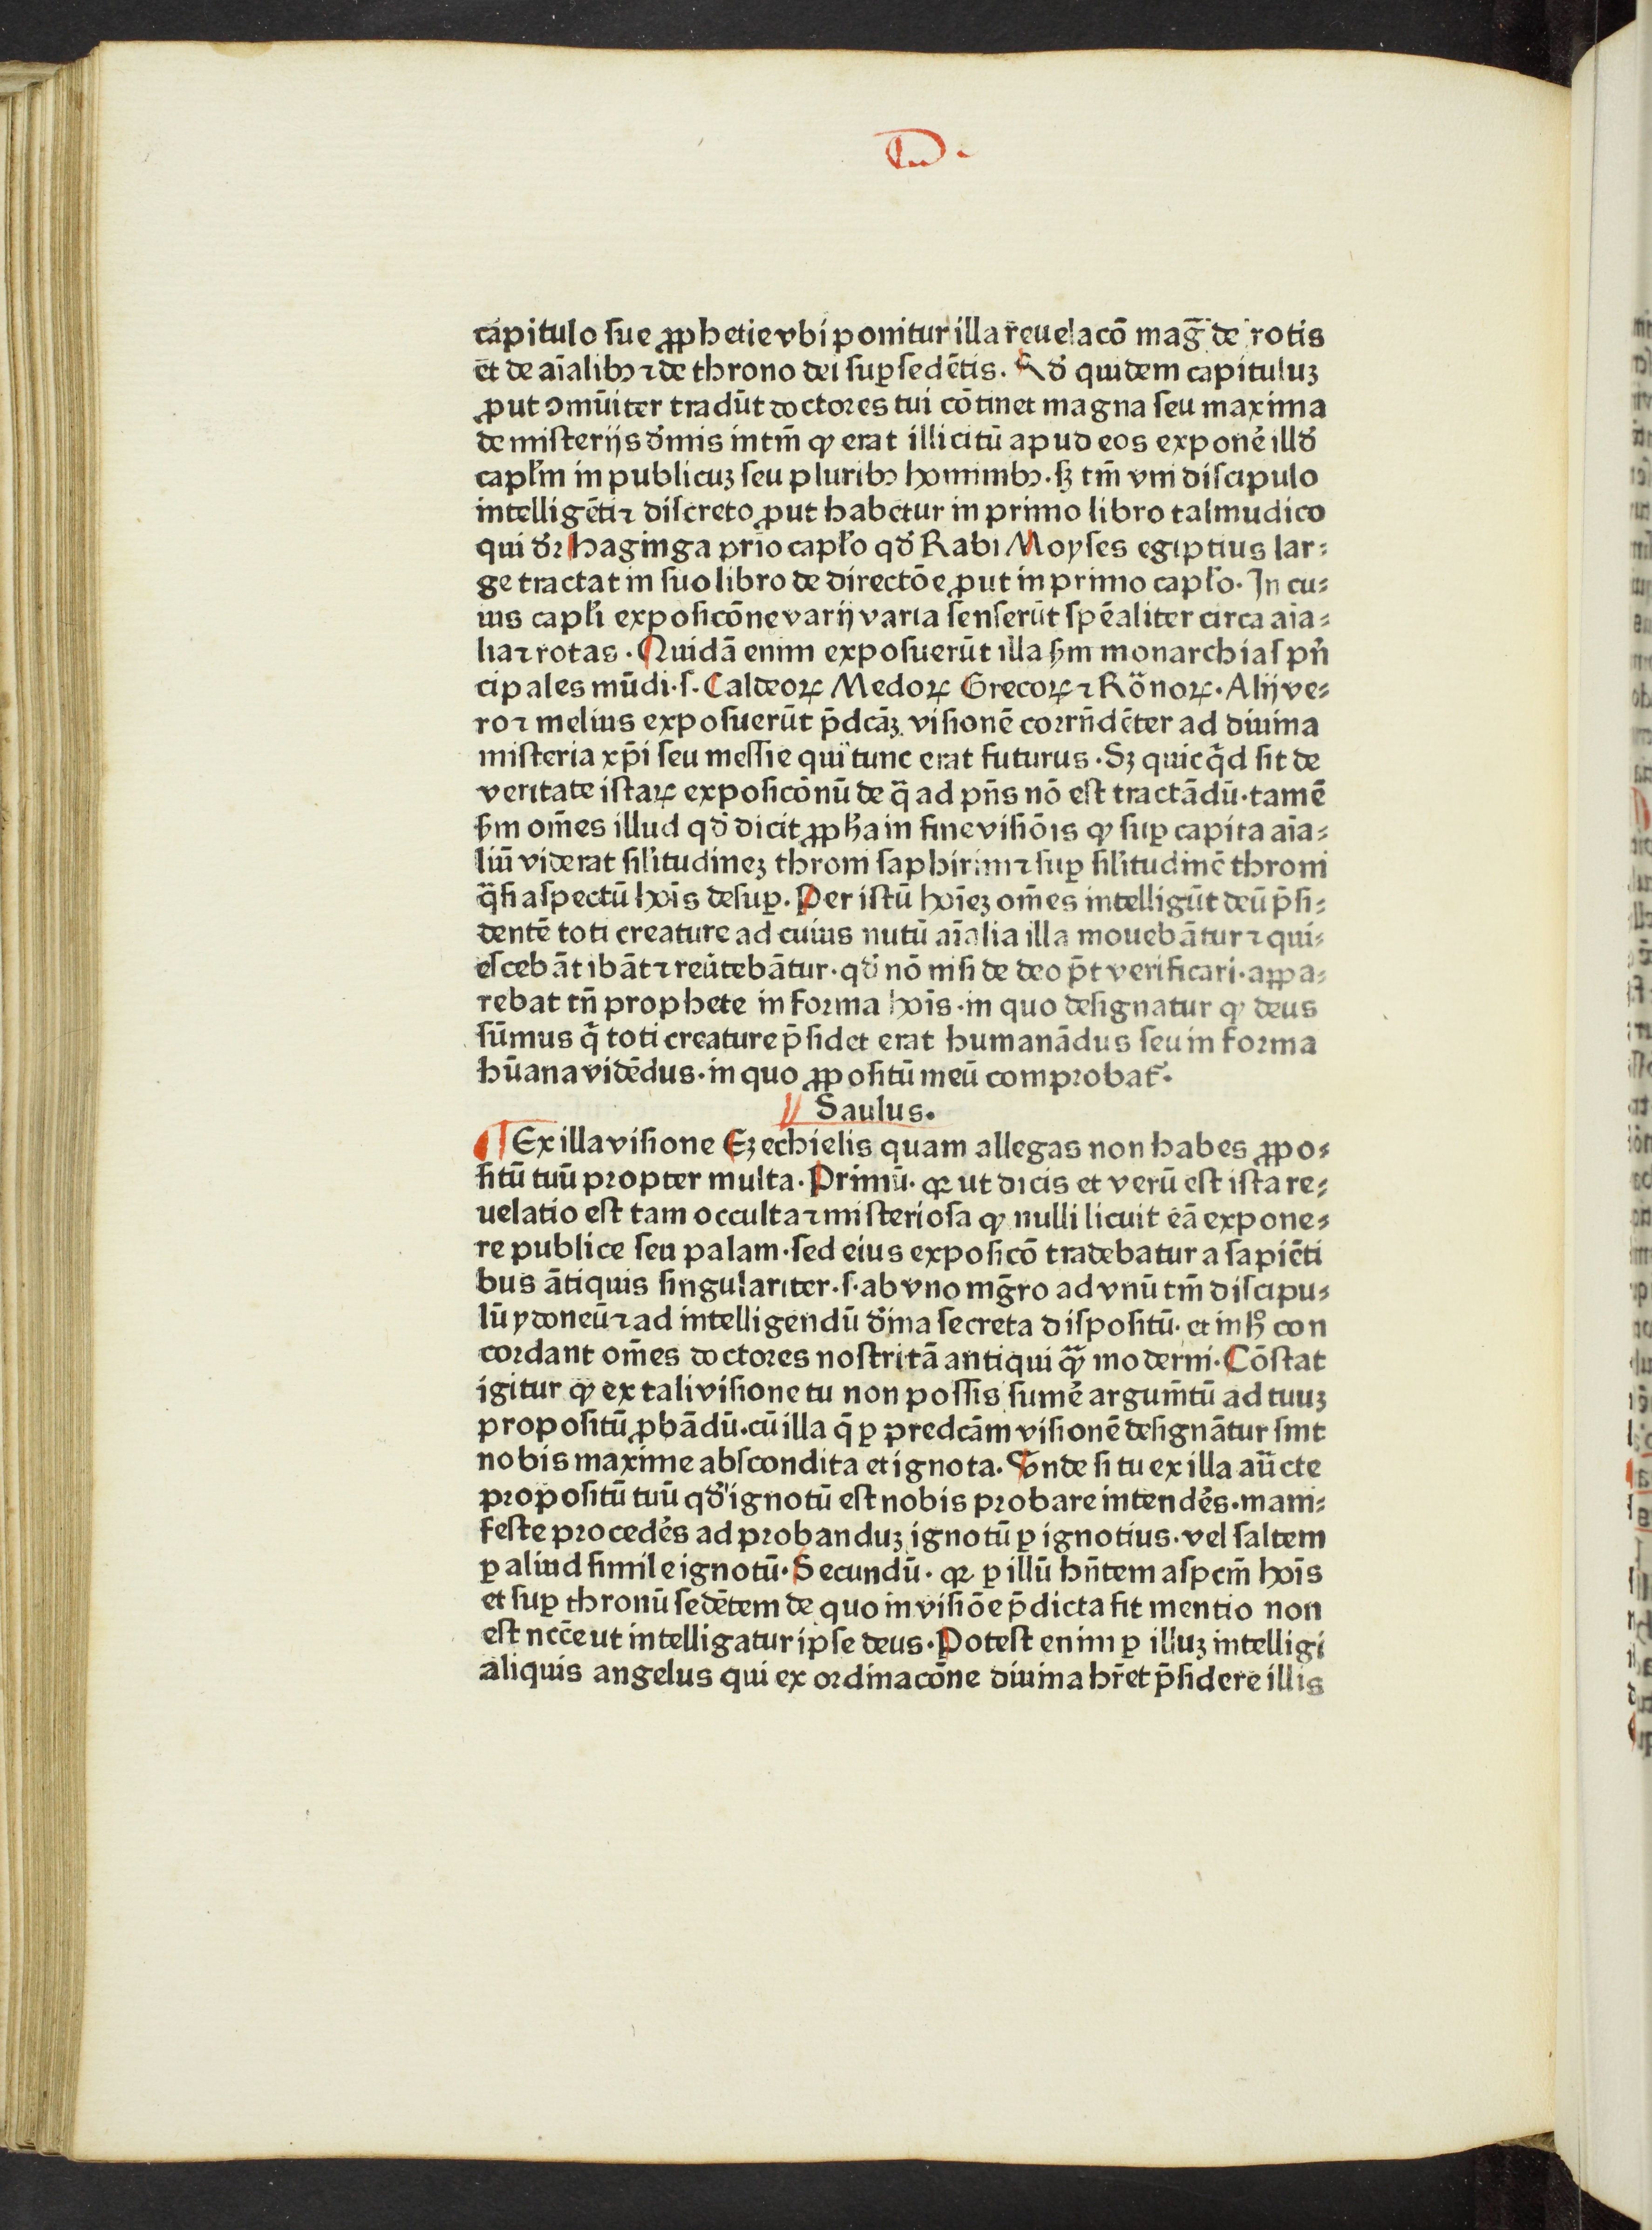 D.
capitulo sue ꝓphetie vbi ponitur illa reuelacō mag̃ de rotis
et de aīalibꝫ ⁊ de throno dei suꝑ sedētis. Qd̕ quidem capituluꝫ
ꝓut ↄmūiter tradūt doctores tui cōtinet magna seu maxima
de misterijs d̕inis intm̄ ꝙ erat illicitū apud eos exponẽ illd̕
capłm in publicuꝫ seu pluribꝫ hominibꝫ. sꝫ tm̄ vni discipulo
intelligēti ⁊ discreto ꝓut habetur in primo libro talmudico
qui dr̄ haginga prio capło qd̕ Rabi Moyses egiptius lar⸗
ge tractat in suo libro de directōe ꝓut in primo capło. In cu⸗
ius capłi exposicōne varij varia senserūt spēaliter circa aīa⸗
lia ⁊ rotas. Quidā enim exposuerūt illa ẜm monarchias pn̄
cipales mūdi. s. Caldeoꝝ Medoꝝ Grecoꝝ ⁊ Rōnoꝝ. Alij ve⸗
ro ⁊ melius exposuerūt p̄dcāꝫ visionē corrn̄dēter ad diuina
misteria xp̄i seu messie qui tunc erat futurus. Sꝫ quicq̄d sit de
veritate istaꝝ exposicōnū de q̄ ad pn̄s nō est tractādū. tamē
ẜm om̄es illud qd̕ dicit ꝓph̄a in fine visiōis ꝙ suꝑ capita aīa⸗
liū viderat silitudineꝫ throni saphirini ⁊ suꝑ silitudinē throni
q̄si aspectū hoīs desuꝑ. Per istū hoīeꝫ om̄es intelligūt deū p̄si⸗
dentē toti creature ad cuius nutū aīalia illa mouebātur ⁊ qui⸗
escebāt ibāt ⁊ reūtebātur. qd̕ nō nisi de deo p̄t verificari. appa⸗
rebat tn̄ prophete in forma hoīs. in quo designatur ꝙ deus
sūmus q̄ toti creature p̄sidet erat humanādus seu in forma
hūana vidēdus. in quo ꝓpositū meū comprobat᷑.
Saulus.
¶ Ex illa visione Ezechielis quam allegas non habes ꝓpo⸗
sitū tuū propter multa. Primū. qꝛ ut dicis et verū est ista re⸗
uelatio est tam occulta ⁊ misteriosa ꝙ nulli licuit eā expone⸗
re publice seu palam. sed eius exposicō tradebatur a sapiēti
bus ātiquis singulariter. s. ab vno mg̃ro ad vnū tm̄ discipu⸗
lū ydoneū ⁊ ad intelligendū d̕ina secreta dispositū. et in hͦ con
cordant om̄es doctores nostri tā antiqui qꝫ̄ moderni. Cōstat
igitur ꝙ ex tali visione tu non possis sumẽ argum̄tū ad tuuꝫ
propositū ꝓbādū. cū illa q̄ ꝑ predcām visionē designātur sint
nobis maxime abscondita et ignota. Vnde si tu ex illa aūcte
propositū tuū qd̕ ignotū est nobis probare intendẽs. mani⸗
feste procedẽs ad probanduꝫ ignotū ꝑ ignotius. vel saltem
ꝑ aliud simile ignotū. Secundū. qꝛ ꝑ illū hn̄tem aspcm̄ hoīs
et suꝑ thronū sedētem de quo in visiōe p̄dicta fit mentio non
est ncc̄e ut intelligatur ipse deus. Potest enim ꝑ illuꝫ intelligi
aliquis angelus qui ex ordinacōne diuina hr̄et p̄sidere illis